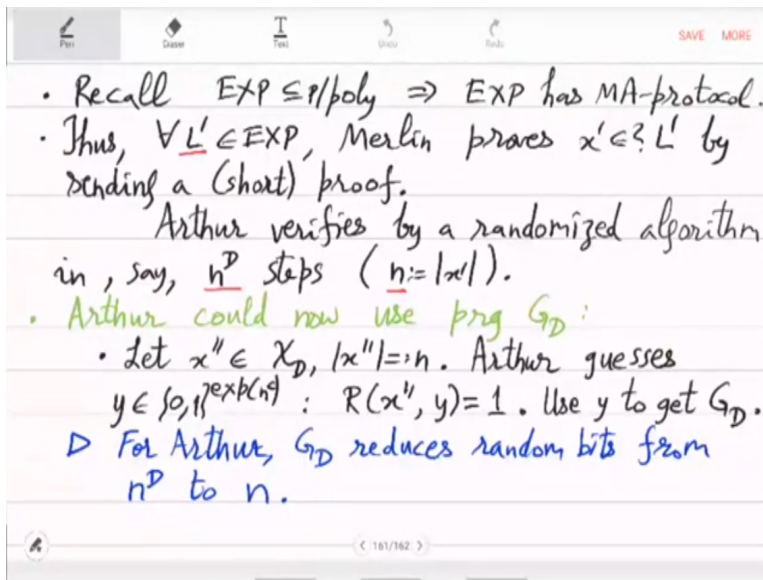 Pen Eraser Text Undo Redo SAVE MORE
· Recall EXP ⊆ P/poly ⇒ EXP has MA-protocol.
· Thus, ∀L' ∈ EXP, Merlin proves x' ∈? L' by
sending a (short) proof.
Arthur verifies by a randomized algorithm
in, say, n^D steps (n := |x'|).
· Arthur could now use prg G_D :
· Let x'' ∈ X_D, |x''| =: n. Arthur guesses
y ∈ {0,1}^exp(n^c) : R(x'', y) = 1. Use y to get G_D.
▷ For Arthur, G_D reduces random bits from
n^D to n.
< 161/162 >